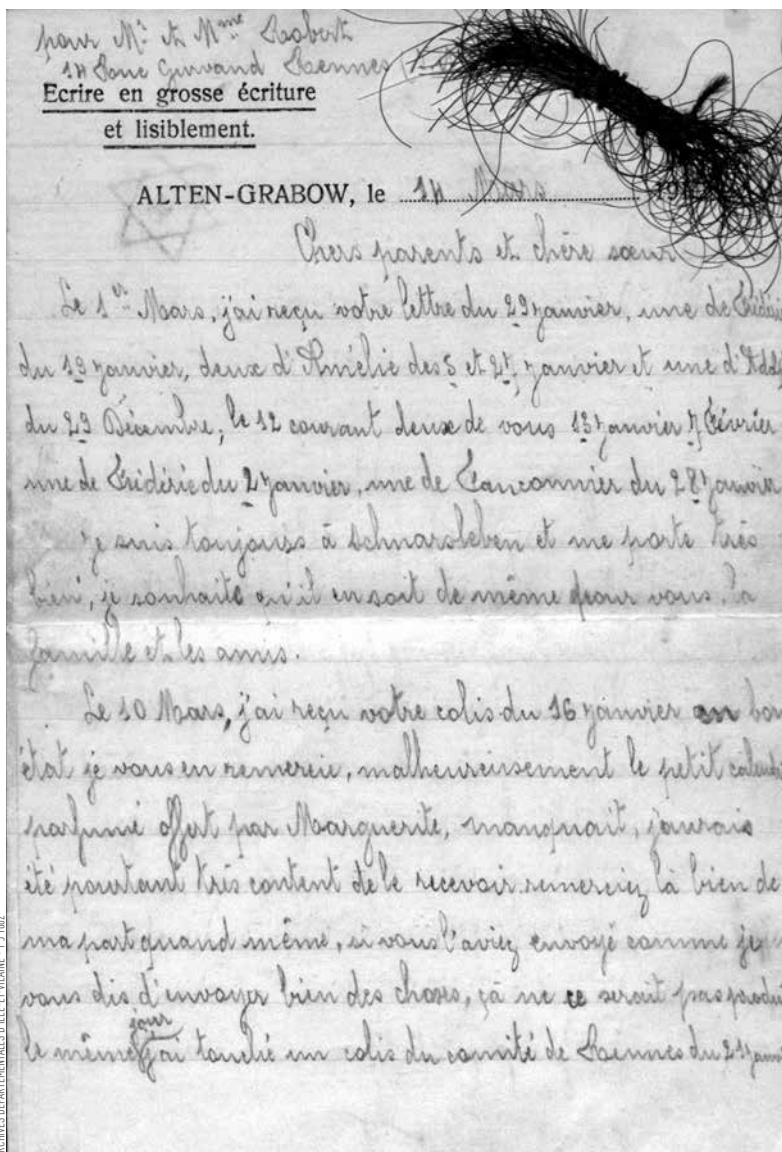 pour Mr et Mme Robert
14 Rue Gurvand Rennes
Ecrire en grosse écriture
et lisiblement.
ALTEN-GRABOW, le 14 Mars 191
Chers parents et chère sœur
Le 1er Mars, j'ai reçu votre lettre du 29 janvier, une de
du 19 janvier, deux d'Amélie des 5 et 27 janvier et une d'
du 23 Décembre, le 12 courant deux de vous 13 janvier 7 Février
une de du 2 janvier, une de du 28 janvier
je suis toujours à Schnarsleben et me porte très
bien, je souhaite qu'il en soit de même pour vous, la
famille et les amis.
Le 10 Mars, j'ai reçu votre colis du 16 janvier en bon
état je vous en remercie, malheureusement le petit
parfumé offert par Marguerite, manquait, j'aurais
été pourtant très content de le recevoir remerciez là bien de
ma part quand même, si vous l'aviez envoyé comme je
vous dis d'envoyer bien des choses, çà ne ce serait pas
le même jour j'ai touché un colis du comité de Rennes du 21